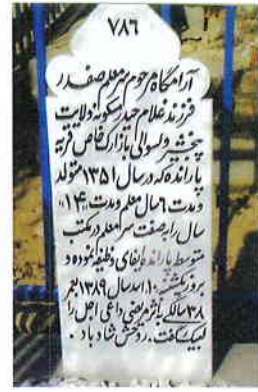 ۷۸۶
آرامگاه مرحوم سرمعلم صفدر
فرزند غلام حیدر مسکونه ولایت
پنجشیر ولسوالی بازارک خاص قریه
پارانده که در سال ۱۳۵۱ متولد
ومدت ۶ سال معلم ومدت «۱۴»
سال را بصفت سر معلم در مکتب
متوسط پارانده ایفای وظیفه نموده و
بروز یکشنبه ۱۰ اسد سال ۱۳۸۹ بعمر
۳۸ سالگی باثر مریضی داعی اجل را
لبیک گفت. روحش شاد باد.